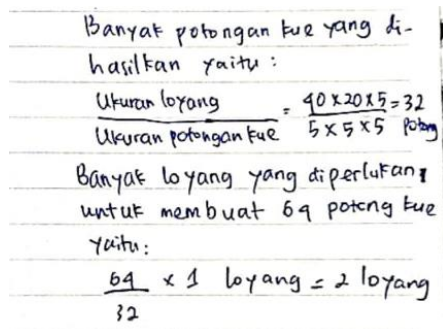 Banyak potongan kue yang di-
hasilkan yaitu :
Ukuran loyang / Ukuran potongan kue = 40 x 20 x 5 / 5 x 5 x 5 = 32 potong
Banyak loyang yang diperlukan
untuk membuat 64 potong kue
yaitu :
64 / 32 x 1 loyang = 2 loyang